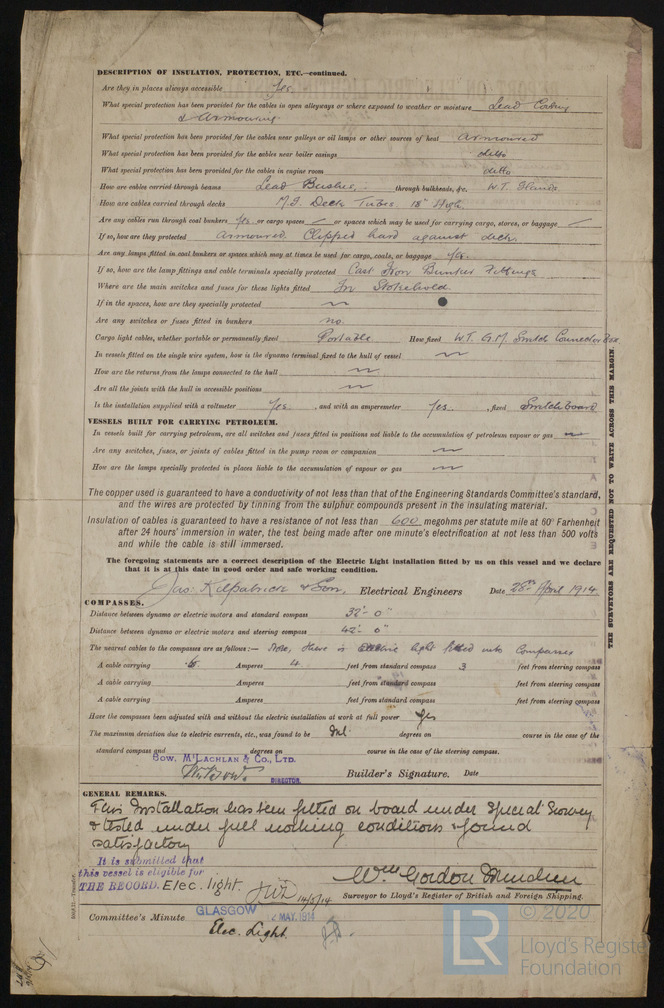 DESCRIPTION OF INSULATION, PROTECTION, ETC.—continued.
Are they in places always accessible Yes.
What special protection has been provided for the cables in open alleyways or where exposed to weather or moisture Lead Covering
& Armouring
What special protection has been provided for the cables near galleys or oil lamps or other sources of heat Armoured
What special protection has been provided for the cables near boiler casings ditto
What special protection has been provided for the cables in engine room ditto
How are cables carried through beams Lead Bushes through bulkheads, &c. W.T. Glands
How are cables carried through decks M.I. Deck Tubes 18" High.
Are any cables run through coal bunkers Yes or cargo spaces — or spaces which may be used for carrying cargo, stores, or baggage —
If so, how are they protected Armoured. Clipped hard against deck.
Are any lamps fitted in coal bunkers or spaces which may at times be used for cargo, coals, or baggage Yes.
If so, how are the lamp fittings and cable terminals specially protected Cast Iron Bunker Fittings
Where are the main switches and fuses for these lights fitted In Stokehold
If in the spaces, how are they specially protected
Are any switches or fuses fitted in bunkers no.
Cargo light cables, whether portable or permanently fixed Portable How fixed W.T. G.M. Switch Connection Box
In vessels fitted on the single wire system, how is the dynamo terminal fixed to the hull of vessel
How are the returns from the lamps connected to the hull
Are all the joints with the hull in accessible positions
Is the installation supplied with a voltmeter Yes. , and with an amperemeter Yes. , fixed Switchboard
VESSELS BUILT FOR CARRYING PETROLEUM.
In vessels built for carrying petroleum, are all switches and fuses fitted in positions not liable to the accumulation of petroleum vapour or gas
Are any switches, fuses, or joints of cables fitted in the pump room or companion
How are the lamps specially protected in places liable to the accumulation of vapour or gas
THE SURVEYORS ARE REQUESTED NOT TO WRITE ACROSS THIS MARGIN
The copper used is guaranteed to have a conductivity of not less than that of the Engineering Standards Committee's standard,
and the wires are protected by tinning from the sulphur compounds present in the insulating material.
Insulation of cables is guaranteed to have a resistance of not less than 600 megohms per statute mile at 60° Farhenheit
after 24 hours' immersion in water, the test being made after one minute's electrification at not less than 500 volts
and while the cable is still immersed.
The foregoing statements are a correct description of the Electric Light installation fitted by us on this vessel and we declare
that it is at this date in good order and safe working condition.
Jas. Kilpatrick & Son, Electrical Engineers Date 28th April 1914
COMPASSES.
Distance between dynamo or electric motors and standard compass 37'- 0"
Distance between dynamo or electric motors and steering compass 42'- 0"
The nearest cables to the compasses are as follows:— Note, there is electric light fitted into Compasses
A cable carrying .6 Amperes 4 feet from standard compass 3 feet from steering compass
A cable carrying Amperes feet from standard compass feet from steering compass
A cable carrying Amperes feet from standard compass feet from steering compass
Have the compasses been adjusted with and without the electric installation at work at full power Yes
The maximum deviation due to electric currents, etc., was found to be Nil degrees on course in the case of the
standard compass and degrees on course in the case of the steering compass.
BOW, M'LACHLAN & CO., LTD.
DIRECTOR. Builder's Signature. Date
GENERAL REMARKS.
This Installation has been fitted on board under Special Survey
& tested under full working conditions & found
satisfactory
It is submitted that
this vessel is eligible for
THE RECORD. Elec. light. 14/5/14
Wm Gordon
Surveyor to Lloyd's Register of British and Foreign Shipping.
Committee's Minute GLASGOW MAY. 1914
Elec. Light.
© 2020
LR
Lloyd's Register
Foundation